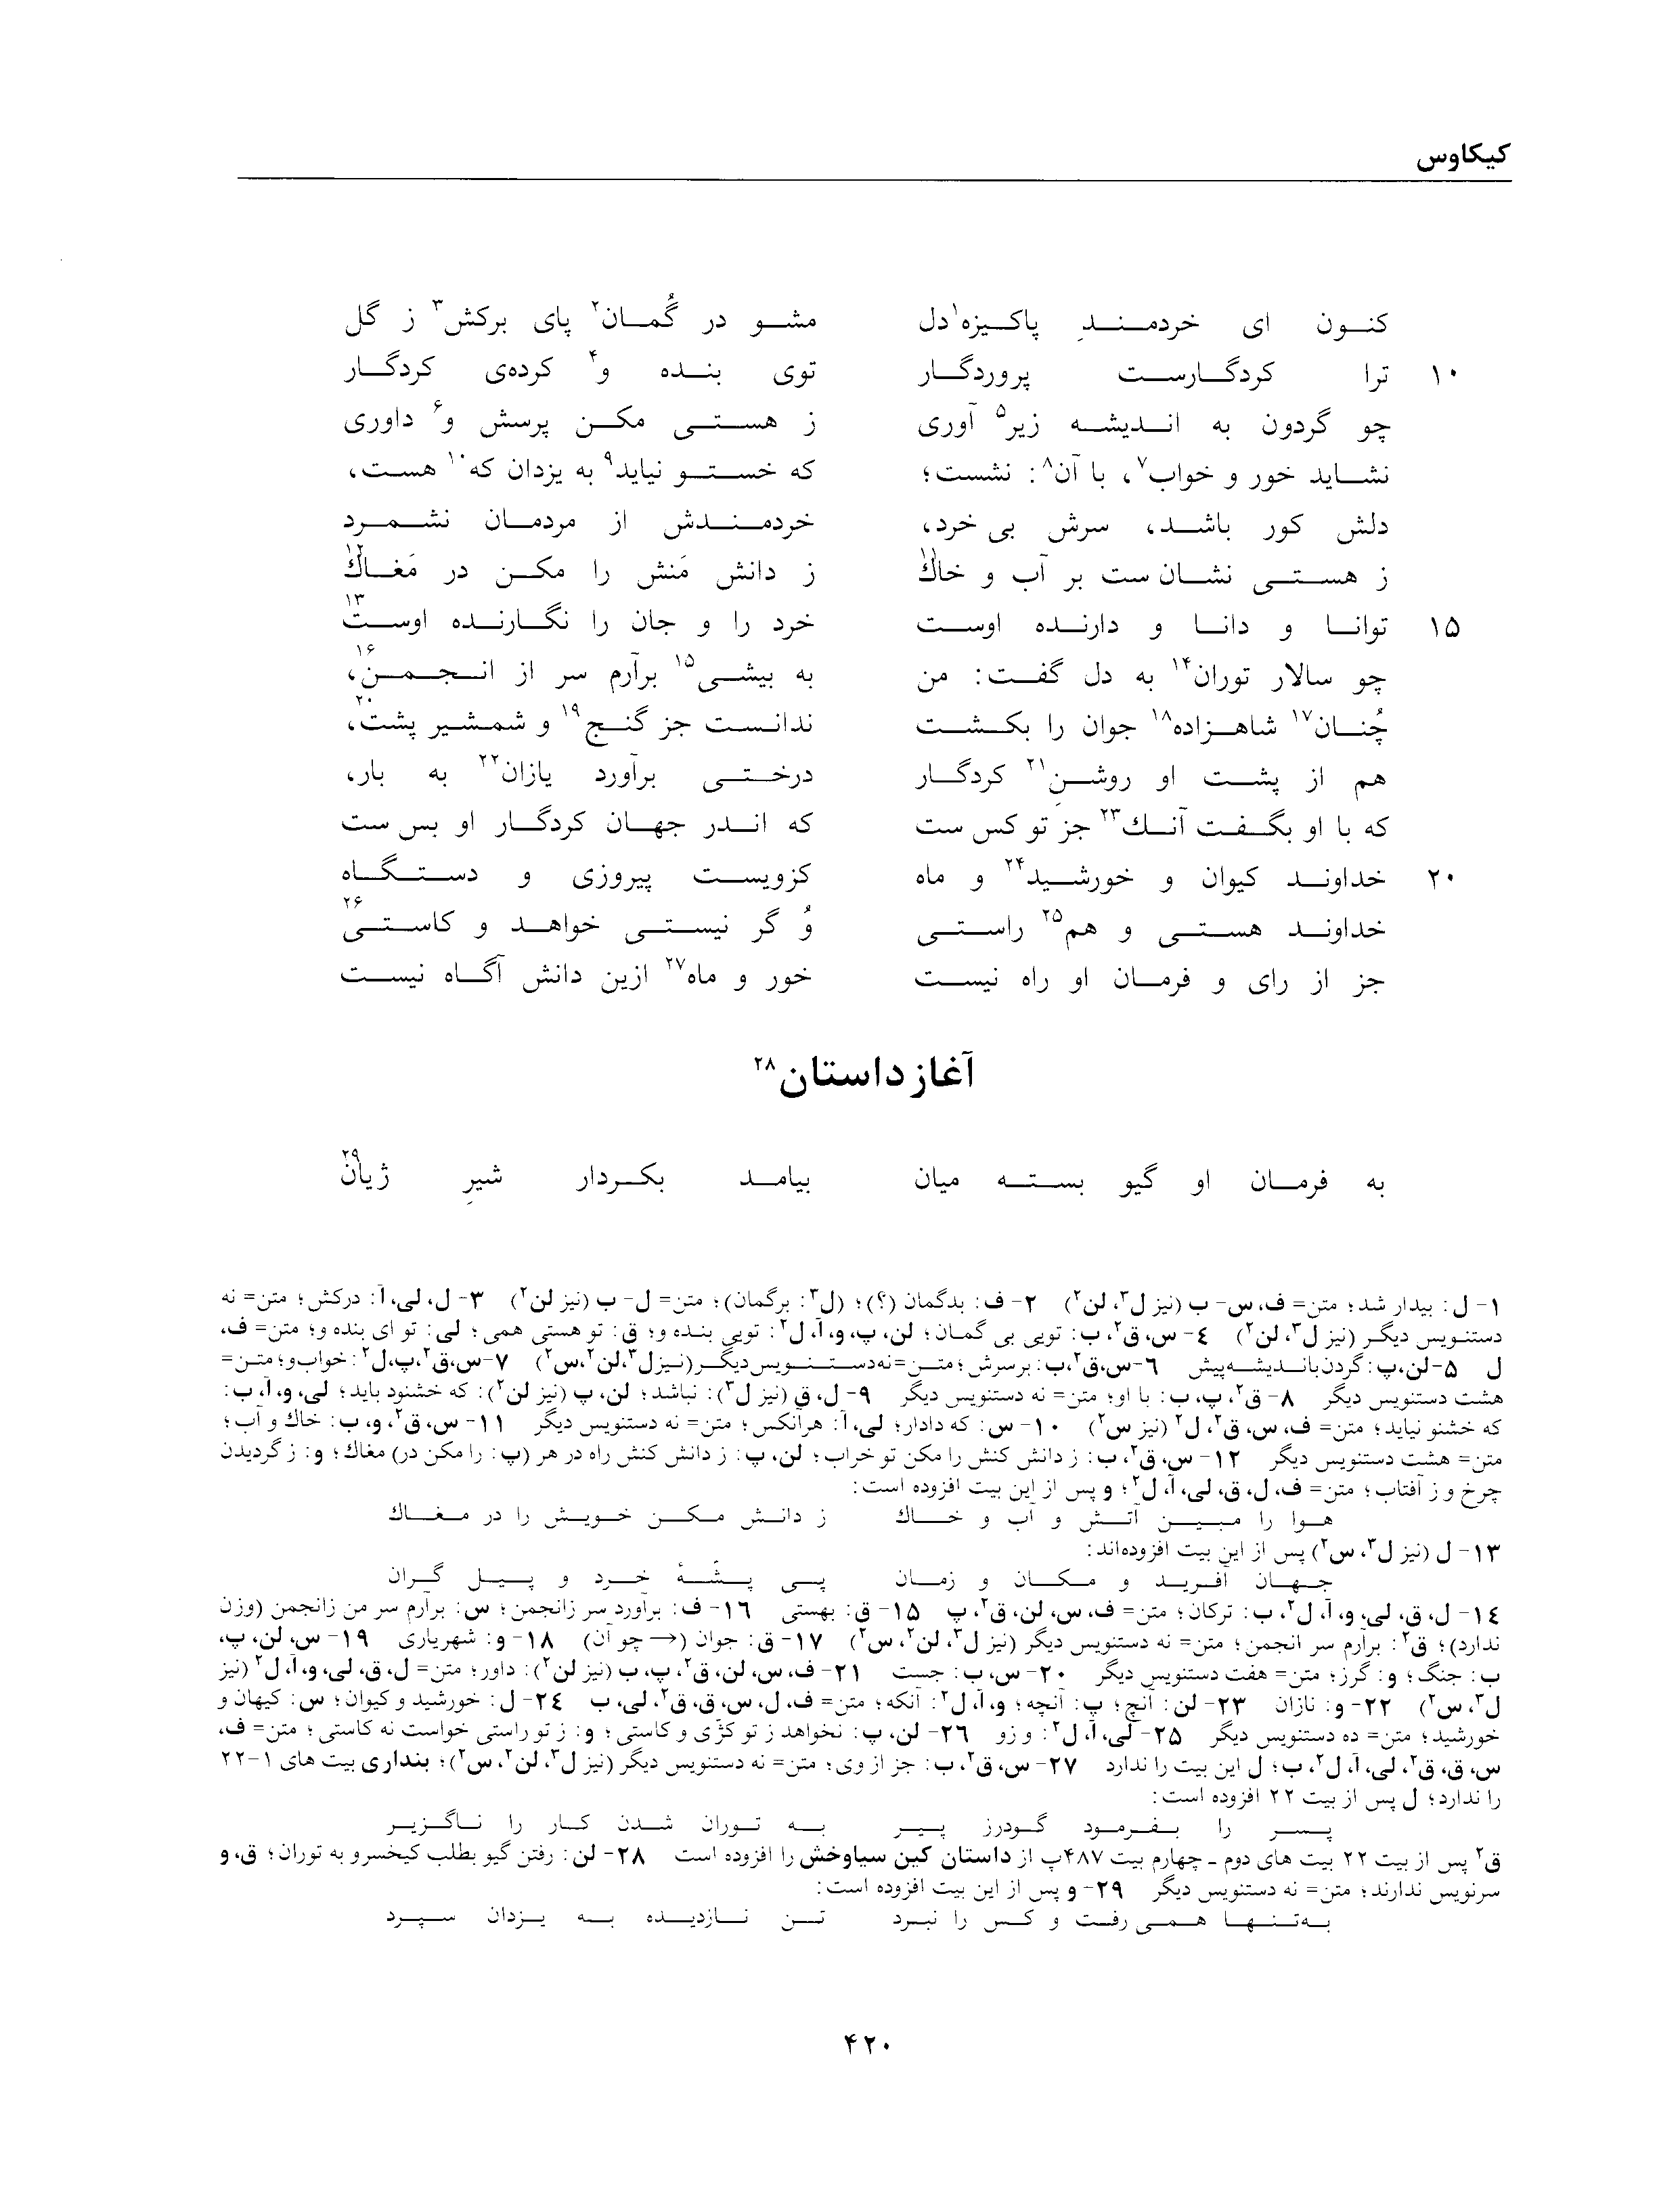 کیکاوس
کنون ای خردمندِ پاکیزه۱دل مشو در گُمان۲ پای برکش۳ ز گل
۱۰ ترا کردگارست پروردگار توی بنده و۴ کرده‌ی کردگار
چو گردون به اندیشه زیر۵ آوری ز هستی مکن پرسش و۶ داوری
نشاید خور و خواب۷، با آن۸: نشست؛ که خستو نیاید۹ به یزدان که۱۰ هست،
دلش کور باشد، سرش بی خرد، خردمندش از مردمان نشمرد
ز هستی نشان ست بر آب و خاك۱۱ ز دانش مَنش را مکن در مَغاك۱۲
۱۵ توانا و دانا و دارنده اوست خرد را و جان را نگارنده اوست۱۳
چو سالار توران۱۴ به دل گفت: من به بیشی۱۵ برآرم سر از انجمن۱۶،
چُنان۱۷ شاهزاده۱۸ جوان را بکشت ندانست جز گنج۱۹ و شمشیر پشت۲۰،
هم از پشت او روشنِ۲۱ کردگار درختی برآورد یازان۲۲ به بار،
که با او بگفت آنك۲۳ جز تو کس ست که اندر جهان کردگار او بس ست
۲۰ خداوند کیوان و خورشید۲۴ و ماه کزویست پیروزی و دستگاه
خداوند هستی و هم۲۵ راستی وُ گر نیستی خواهد و کاستی۲۶
جز از رای و فرمان او راه نیست خور و ماه۲۷ ازین دانش آگاه نیست
آغاز داستان۲۸
به فرمان او گیو بسته میان بیامد بکردار شیرِ ژیان۲۹
۱- ل: بیدار شد؛ متن= ف، س- ب (نیز ل۳، لن۲) ۲- ف: بدگمان (؟)؛ (ل۳: برگمان)؛ متن= ل- ب (نیز لن۲) ۳- ل، لی، آ: درکش؛ متن= نه
دستنویس دیگر (نیز ل۳، لن۲) ٤- س، ق۲، ب: تویی بی گمان؛ لن، پ، و، آ، ل۲: تویی بنده و؛ ق: تو هستی همی؛ لی: تو ای بنده و؛ متن= ف،
ل ۵-لن،پ: گردن‌باندیشه‌پیش ٦-س،ق۲،ب: برسرش؛ متن=نه‌دستنویس‌دیگر(نیزل۳،لن۲،س۲) ۷-س،ق۲،پ،ل۲: خواب‌و؛ متن=
هشت دستنویس دیگر ۸- ق۲، پ، ب: با او؛ متن= نه دستنویس دیگر ۹- ل، ق (نیز ل۳): نباشد؛ لن، پ (نیز لن۲): که خشنود باید؛ لی، و، آ، ب:
که خشنو نیاید؛ متن= ف، س، ق۲، ل۲ (نیز س۲) ۱۰- س: که دادار؛ لی، آ: هرآنکس؛ متن= نه دستنویس دیگر ۱۱- س، ق۲، و، ب: خاك و آب؛
متن= هشت دستنویس دیگر ۱۲- س، ق۲، ب: ز دانش کنش را مکن تو خراب؛ لن، پ: ز دانش کنش راه در هر (پ: را مکن در) مغاك؛ و: ز گردیدن
چرخ و ز آفتاب؛ متن= ف، ل، ق، لی، آ، ل۲؛ و پس از این بیت افزوده است:
هوا را مبین آتش و آب و خاك ز دانش مکن خویش را در مغاك
۱۳- ل (نیز ل۳، س۲) پس از این بیت افزوده‌اند:
جهان آفرید و مکان و زمان پی پشّهٔ خرد و پیل گران
۱٤- ل، ق، لی، و، آ، ل۲، ب: ترکان؛ متن= ف، س، لن، ق۲، پ ۱۵- ق: بهستی ۱٦- ف: برآورد سر زانجمن؛ س: برآرم سر من زانجمن (وزن
ندارد)؛ ق۲: برآرم سر انجمن؛ متن= نه دستنویس دیگر (نیز ل۳، لن۲، س۲) ۱۷- ق: جوان (← چو آن) ۱۸- و: شهریاری ۱۹- س، لن، پ،
ب: جنگ؛ و: گرز؛ متن= هفت دستنویس دیگر ۲۰- س، ب: جست ۲۱- ف، س، لن، ق۲، پ، ب (نیز لن۲): داور؛ متن= ل، ق، لی، و، آ، ل۲ (نیز
ل۳، س۲) ۲۲- و: نازان ۲۳- لن: آنچ؛ پ: آنچه؛ و، آ، ل۲: آنکه؛ متن= ف، ل، س، ق، ق۲، لی، ب ۲٤- ل: خورشید و کیوان؛ س: کیهان و
خورشید؛ متن= ده دستنویس دیگر ۲۵- لی، آ، ل۲: و زو ۲٦- لن، پ: نخواهد ز تو کژی و کاستی؛ و: ز تو راستی خواست نه کاستی؛ متن= ف،
س، ق، ق۲، لی، آ، ل۲، ب؛ ل این بیت را ندارد ۲۷- س، ق۲، ب: جز از وی؛ متن= نه دستنویس دیگر (نیز ل۳، لن۲، س۲)؛ بنداری بیت های ۱-۲۲
را ندارد؛ ل پس از بیت ۲۲ افزوده است:
پسر را بفرمود گودرز پیر به توران شدن کار را ناگزیر
ق۲ پس از بیت ۲۲ بیت های دوم ـ چهارم بیت ۴۸۷پ از داستان کین سیاوخش را افزوده است ۲۸- لن: رفتن گیو بطلب کیخسرو به توران؛ ق، و
سرنویس ندارند؛ متن= نه دستنویس دیگر ۲۹- و پس از این بیت افزوده است:
به‌تنها همی رفت و کس را نبرد تن نازدیده به یزدان سپرد
۴۲۰